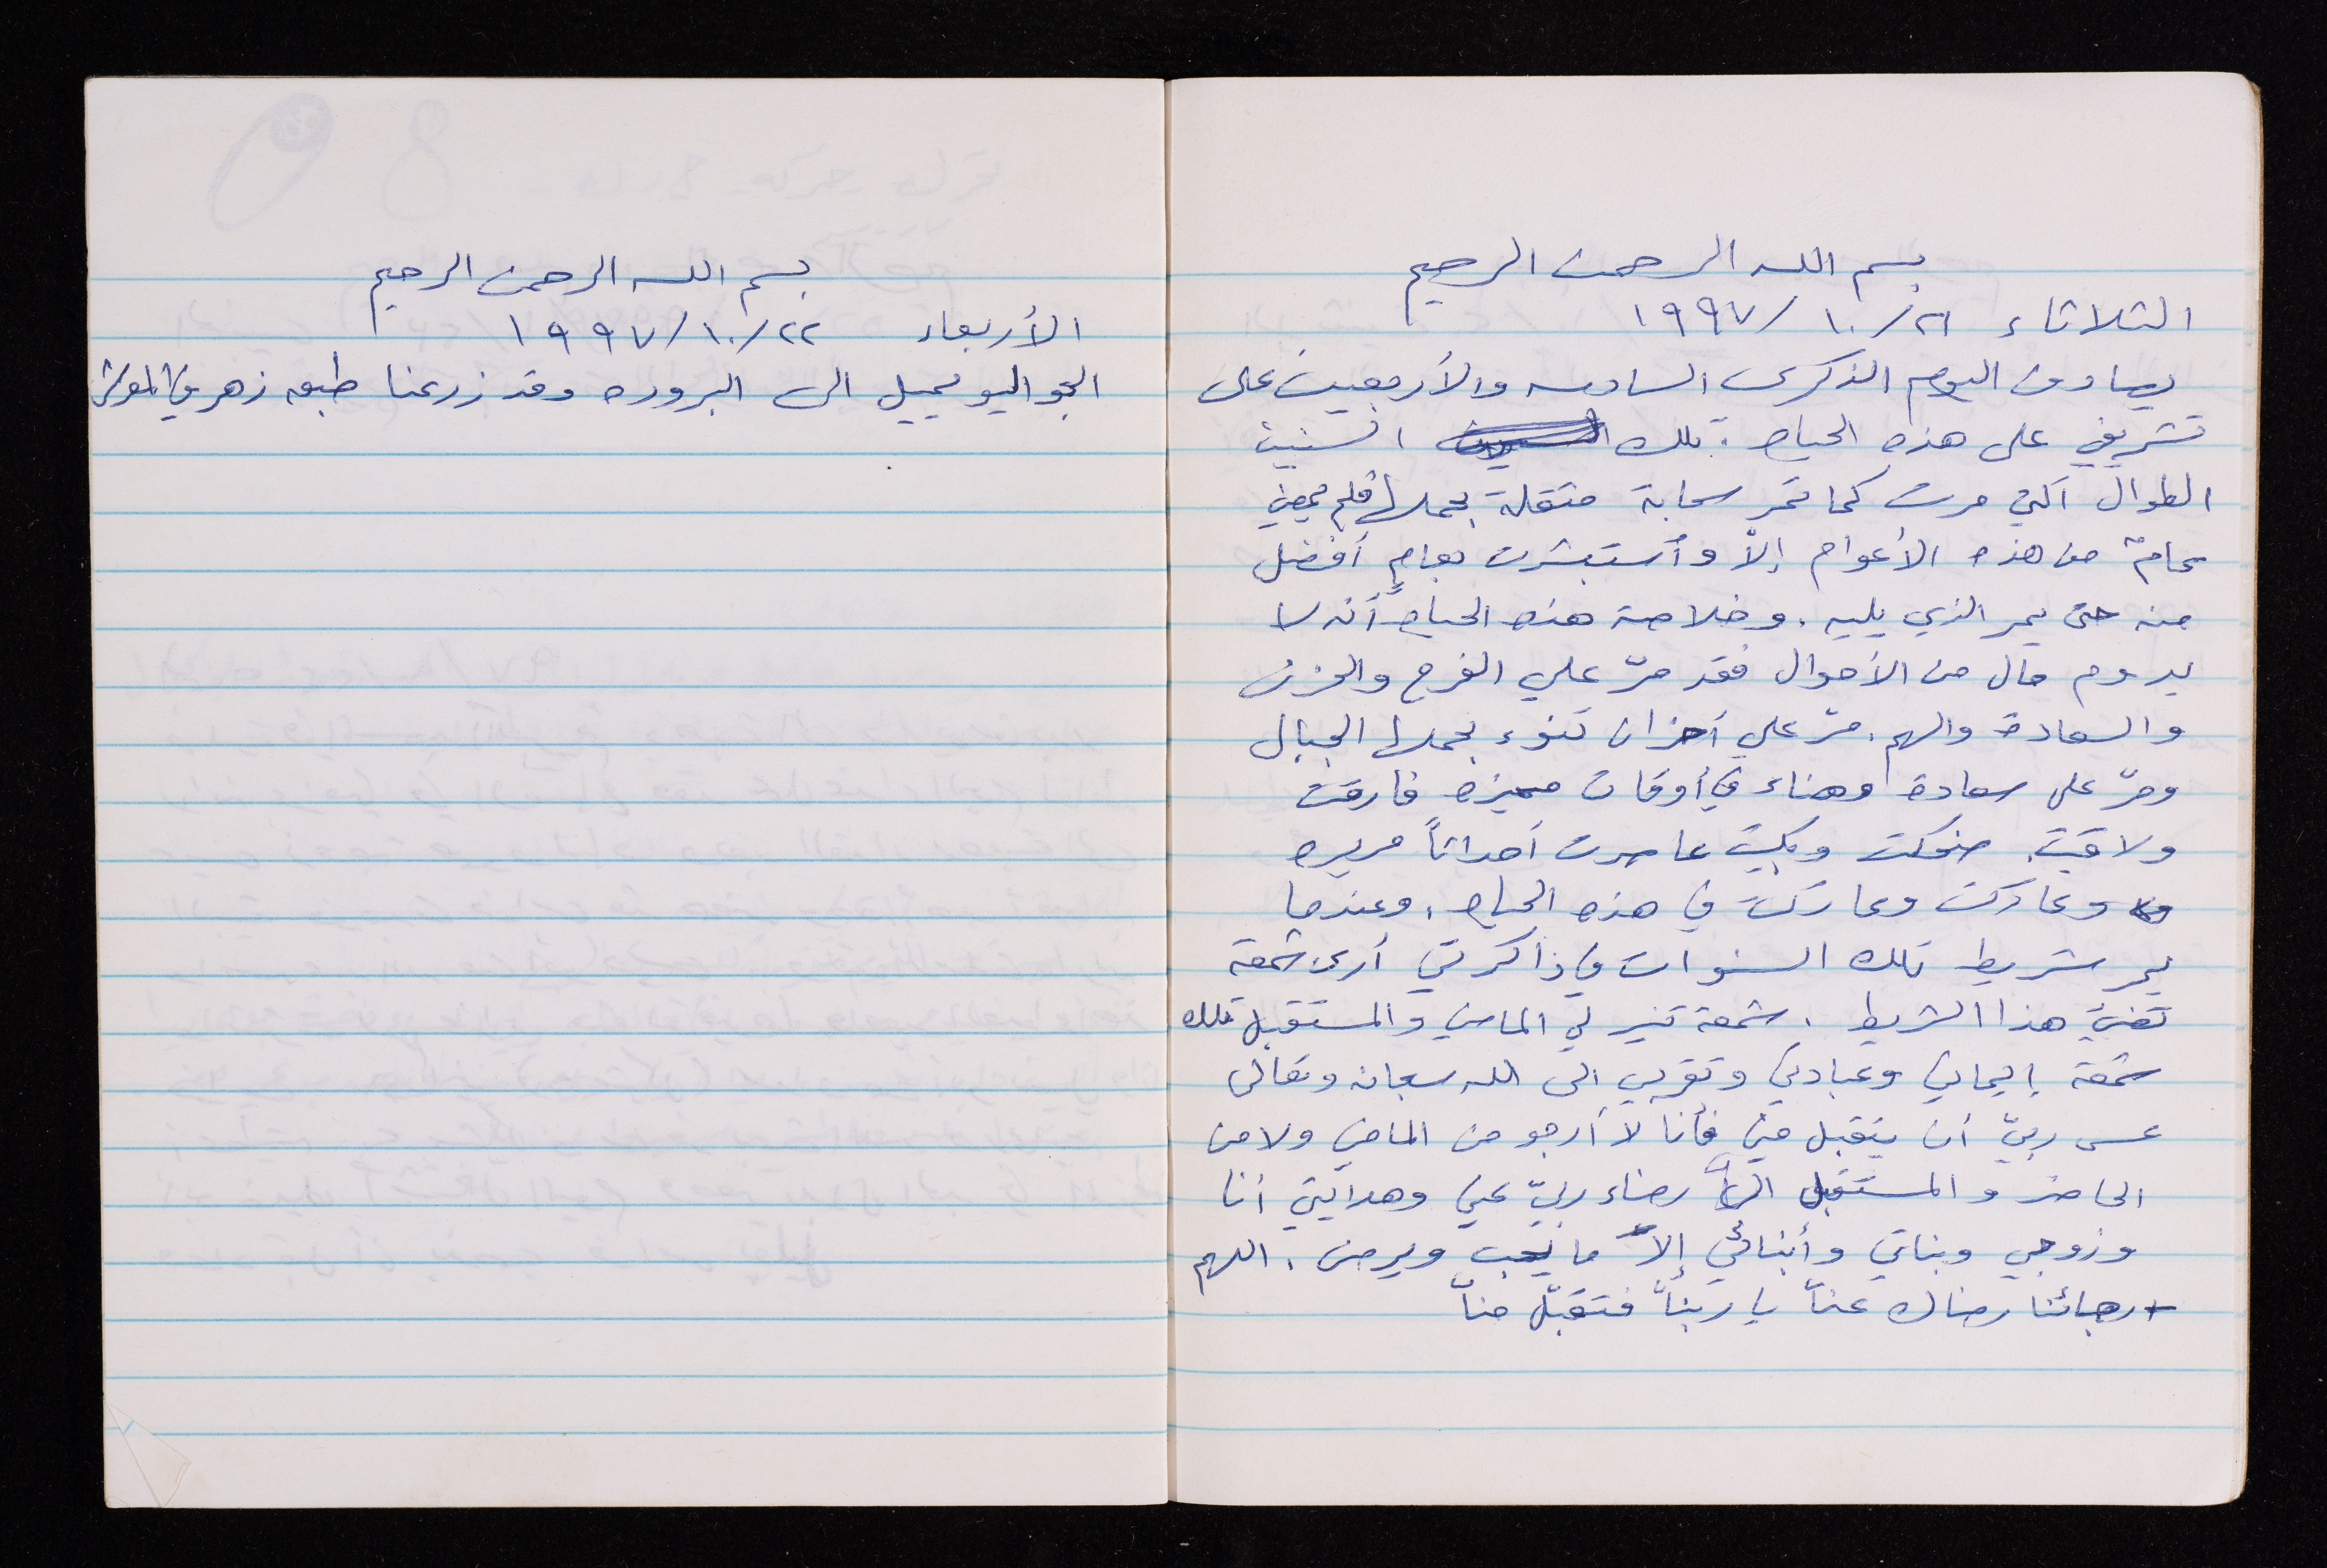 بسم الله الرحمن الرحيم
الثلاثاء ٢١/١٠/١٩٩٧
يصادف اليوم الذكرى السادسه والأربعين على
تشريفي على هذه الحياه. تلك السنين
الطوال التي مرت كما تمر سحابة مثقلة بحملها فلم يمضي
عامٌ من هذه الأعوام إلاّ وأستبشرت بعامٍ أفضل
منه حتى يمر الذي يليه. وخلاصة هذه الحياه أنه لا
يدوم حال من الأحوال فقد مرّ علي الفرح والحزن
والسعادة والهم. مرّ علي أحزان تنوء بحملها الجبال
ومرّ على سعادة وهناء في أوقات مميزه فارقت
ولاقيت. ضحكت وبكيت عاصرت أحداثاً مريره
وعاركت وعاركت في هذه الحياه. وعندما
يمر شريط تلك السنوات في ذاكرتي أرى شمعة
تضيئ هذا الشريط. شمعة تنير لي الماضي والمستقبل تلك
شمعة إيماني وعبادتي وتقربي الى الله سبحانه وتعالى
عسى ربيّ أن يتقبل مني فأنا لا أرجو من الماضي ولا من
الحاضر والمستقبل رضاء ربيّ عني وهدايتي أنا
وزوجي وبناتي وأبنائي إلاّ ما يحب ويرضى. اللهم
رجائنا رضاك عناّ يا ربناّ فتقبّل مناّ
بسم الله الرحمن الرحيم
الأربعاء ٢٢/١٠/١٩٩٧
الجو اليو يميل الى البروده وقد زرعنا طبعه زهر في